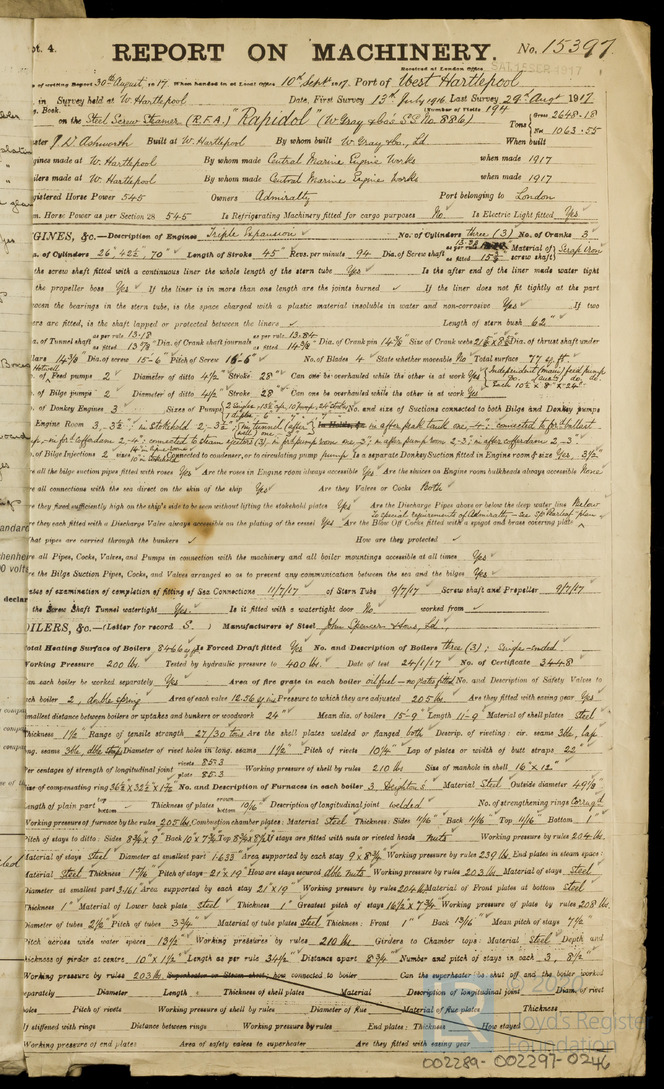 pt. 4. REPORT ON MACHINERY. No. 15397
Received at London Office SAT.15 SEP 1917
of writing Report 30th August 1917 When handed in at Local Office 10th Septr 1917. Port of West Hartlepool
in Survey held at W. Hartlepool Date, First Survey 13th July 1916. Last Survey 29th Augt 1917.
Book. (Number of Visits 194
on the Steel Screw Steamer (R.F.A.) "Rapidol" (W Gray & Co's S.S. No. 886) Tons Gross 2648.18 Net 1063.55
ster J. D. Ashworth Built at W. Hartlepool By whom built W. Gray & Co., Ld When built
gines made at W. Hartlepool By whom made Central Marine Engine Works when made 1917
ilers made at W. Hartlepool By whom made Central Marine Engine Works when made 1917
gistered Horse Power 545 Owners Admiralty Port belonging to London
m. Horse Power as per Section 28 545 Is Refrigerating Machinery fitted for cargo purposes No. Is Electric Light fitted Yes
NGINES, &c.—Description of Engines Triple Expansion No. of Cylinders three (3) No. of Cranks 3
a. of Cylinders 26" 42½" 70" Length of Stroke 45" Revs. per minute 94 Dia. of Screw shaft as per rule as fitted Material of screw shaft) Scrap Iron
the screw shaft fitted with a continuous liner the whole length of the stern tube Yes Is the after end of the liner made water tight
the propeller boss Yes If the liner is in more than one length are the joints burned ✓ If the liner does not fit tightly at the part
ween the bearings in the stern tube, is the space charged with a plastic material insoluble in water and non-corrosive Yes If two
ers are fitted, is the shaft lapped or protected between the liners ✓ Length of stern bush 62"
a. of Tunnel shaft as per rule 13.18 as fitted 13⅞ Dia. of Crank shaft journals as per rule 13.84 as fitted 14⅜" Dia. of Crank pin 14⅜" Size of Crank webs Dia. of thrust shaft under
lars 14⅜" Dia. of screw 15-6" Pitch of Screw 16-6" No. of Blades 4 State whether moveable No Total surface 77 sq. ft.
Hotwell
of Feed pumps 2 Diameter of ditto 4½" Stroke 28" Can one be overhauled while the other is at work Yes {Independent (main) feed pump
do. (auxy) do. do. Each 10½" x 8" x 24"
of Bilge pumps 2 Diameter of ditto 4½" Stroke 28" Can one be overhauled while the other is at work Yes
of Donkey Engines 3 Sizes of Pumps No. and size of Suctions connected to both Bilge and Donkey pumps
Engine Room 3, 3½"; in stokehold 2, 3½"; in tunnel (after) in after peak tank one, 4"; connected to for'd ballast
in for'd cofferdam 2-4": connected to steam ejectors (3), in ford pump room one 3"; in after pump room 2-3"; in after cofferdam 2-3".
of Bilge Injections 2 sizes Connected to condenser, or to circulating pump pump Is a separate Donkey Suction fitted in Engine room & size Yes 3½"
re all the bilge suction pipes fitted with roses Yes Are the roses in Engine room always accessible Yes Are the sluices on Engine room bulkheads always accessible None
re all connections with the sea direct on the skin of the ship Yes Are they Valves or Cocks Both
re they fixed sufficiently high on the ship's side to be seen without lifting the stokehold plates Yes Are the Discharge Pipes above or below the deep water line Below
re they each fitted with a Discharge Valve always accessible on the plating of the vessel Yes Are the Blow Off Cocks fitted with a spigot and brass covering plate
hat pipes are carried through the bunkers ✓ How are they protected ✓
re all Pipes, Cocks, Valves, and Pumps in connection with the machinery and all boiler mountings accessible at all times Yes
re the Bilge Suction Pipes, Cocks, and Valves arranged so as to prevent any communication between the sea and the bilges Yes
ates of examination of completion of fitting of Sea Connections 11/7/17 of Stern Tube 9/7/17 Screw shaft and Propeller 9/7/17
the Screw Shaft Tunnel watertight Yes. Is it fitted with a watertight door No worked from ✓
OILERS, &c.—(Letter for record S. ) Manufacturers of Steel John Spencer & Sons, Ld.
otal Heating Surface of Boilers 8466 sq ft Is Forced Draft fitted Yes No. and Description of Boilers three (3); Single-ended
Working Pressure 200 lbs. Tested by hydraulic pressure to 400 lbs. Date of test 24/1/17 No. of Certificate 3448
an each boiler be worked separately Yes Area of fire grate in each boiler oil fuel—no grate fitted No. and Description of Safety Valves to
ach boiler 2, double spring Area of each valve 12.56 sq ins Pressure to which they are adjusted 205 lbs. Are they fitted with easing gear Yes
mallest distance between boilers or uptakes and bunkers or woodwork 24" Mean dia. of boilers 15-9" Length 11-9 Material of shell plates steel
Thickness 1½" Range of tensile strength 27/30 tons Are the shell plates welded or flanged both Descrip. of riveting: cir. seams dble, lap
ng. seams Diameter of rivet holes in long. seams 1⅝" Pitch of rivets 10¼" Lap of plates or width of butt straps 22"
er centages of strength of longitudinal joint rivets 85.3 plate 85.3 Working pressure of shell by rules 210 lbs Size of manhole in shell 16" x 12"
ize of compensating ring No. and Description of Furnaces in each boiler 3, Deighton's Material Steel Outside diameter 49⅝"
ength of plain part top bottom Thickness of plates crown bottom 19/16" Description of longitudinal joint welded No. of strengthening rings Corrugtd
Working pressure of furnace by the rules 205 lbs. Combustion chamber plates: Material Steel Thickness: Sides 11/16" Back 11/16" Top 11/16" Bottom 1"
Pitch of stays to ditto: Sides Back Top If stays are fitted with nuts or riveted heads nuts Working pressure by rules 204 lbs.
aterial of stays Steel Diameter at smallest part 1.633" Area supported by each stay 9" x 8¾" Working pressure by rules 239 lbs. End plates in steam space:
Material Steel Thickness Pitch of stays 21" x 19" How are stays secured dble nuts Working pressure by rules 203 lbs. Material of stays Steel
Diameter at smallest part 3.161" Area supported by each stay 21" x 19" Working pressure by rules 204 lbs Material of Front plates at bottom Steel
Thickness 1" Material of Lower back plate Steel Thickness 1" Greatest pitch of stays Working pressure of plate by rules 208 lbs.
iameter of tubes 2½" Pitch of tubes 3¾" Material of tube plates Steel Thickness: Front 1" Back 13/16" Mean pitch of stays 7½"
itch across wide water spaces 13½" Working pressures by rules 210 lbs. Girders to Chamber tops: Material Steel Depth and
hickness of girder at centre 10" x 1½" Length as per rule 34⅛" Distance apart 8¾" Number and pitch of stays in each 3, 8½"
Working pressure by rules 203 lbs. Superheater or Steam chest; how connected to boiler Can the superheater be shut off and the boiler worked
eparately Diameter Length Thickness of shell plates Material Description of longitudinal joint Diam. of rivet
oles Pitch of rivets Working pressure of shell by rules Diameter of flue Material of flue plates Thickness
If stiffened with rings Distance between rings Working pressure by rules End plates: Thickness How stayed
Working pressure of end plates Area of safety valves to superheater Are they fitted with easing gear
Lloyd's Register
Foundation
002289-002297-0246